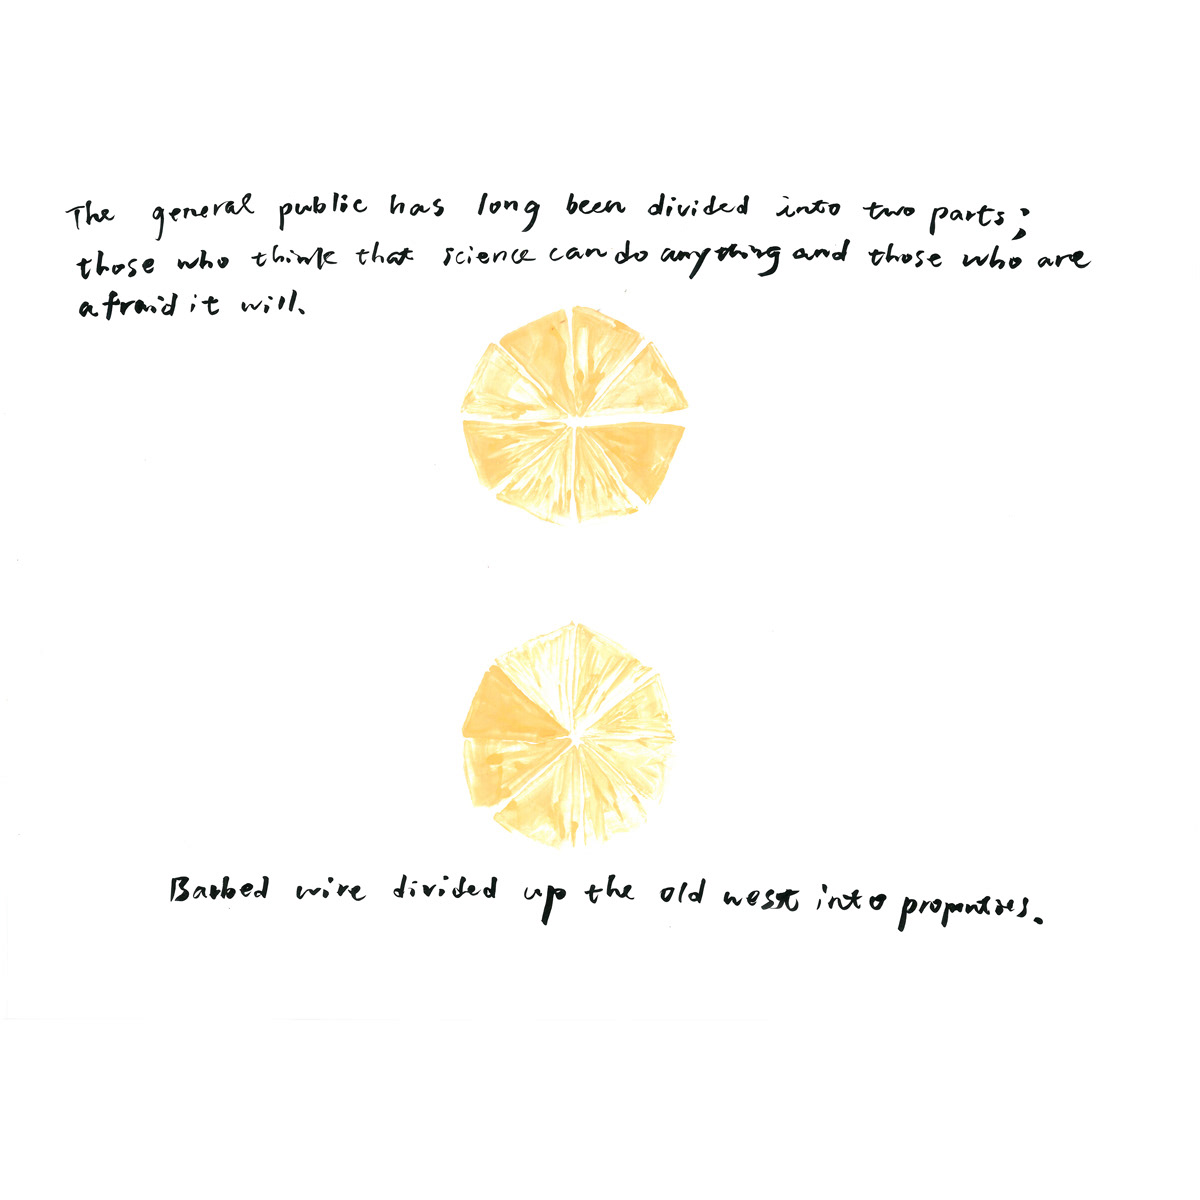 The general public has long been divided into two parts;
those who think that science can do anything and those who are
afraid it will.
Barbed wire divided up the old west into properties.